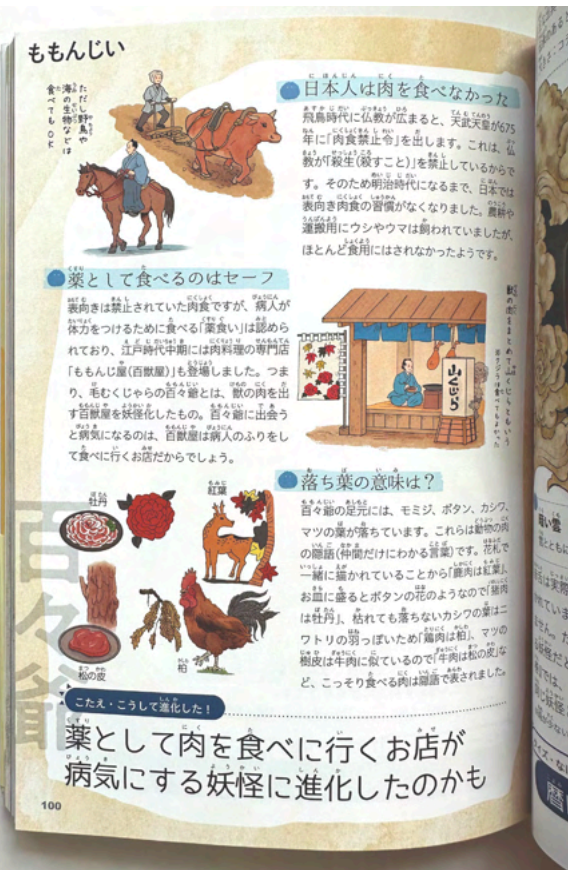 ももんじい
日本人は肉を食べなかった
飛鳥時代に仏教が広まると、天武天皇が675
年に「肉食禁止令」を出します。これは、仏
教が「殺生(殺すこと)」を禁止しているからで
す。そのため明治時代になるまで、日本では
表向き肉食の習慣がなくなりました。農耕や
運搬用にウシやウマは飼われていましたが、
ほとんど食用にはされなかったようです。
ただし野鳥や
海の生物などは
食べてもOK
薬として食べるのはセーフ
表向きは禁止されていた肉食ですが、病人が
体力をつけるために食べる「薬食い」は認めら
れており、江戸時代中期には肉料理の専門店
「ももんじ屋(百獣屋)」も登場しました。つま
り、毛むくじゃらの百々爺とは、獣の肉を出
す百獣屋を妖怪化したもの。百々爺に出会う
と病気になるのは、百獣屋は病人のふりをし
て食べに行くお店だからでしょう。
獣の肉をまとめて「山くじら」ともいう
※クジラは食べてもよかった
山くじら
落ち葉の意味は?
百々爺の足元には、モミジ、ボタン、カシワ、
マツの葉が落ちています。これらは動物の肉
の隠語(仲間だけにわかる言葉)です。花札で
一緒に描かれていることから「鹿肉は紅葉」、
お皿に盛るとボタンの花のようなので「猪肉
は牡丹」、枯れても落ちないカシワの葉はニ
ワトリの羽っぽいため「鶏肉は柏」、マツの
樹皮は牛肉に似ているので「牛肉は松の皮」な
ど、こっそり食べる肉は隠語で表されました。
牡丹
紅葉
松の皮
柏
百々爺
こたえ・こうして進化した!
薬として肉を食べに行くお店が
病気にする妖怪に進化したのかも
100